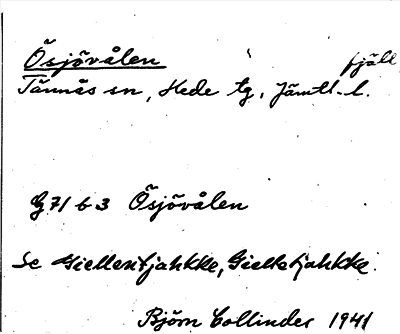 Ösjövålen fjäll
Tännäs sn, Hede tg, Jämtl. l.
G 71 b 3 Ösjövålen
Se Giellentjahkke, Gielletjahkke.
Björn Collinder 1941